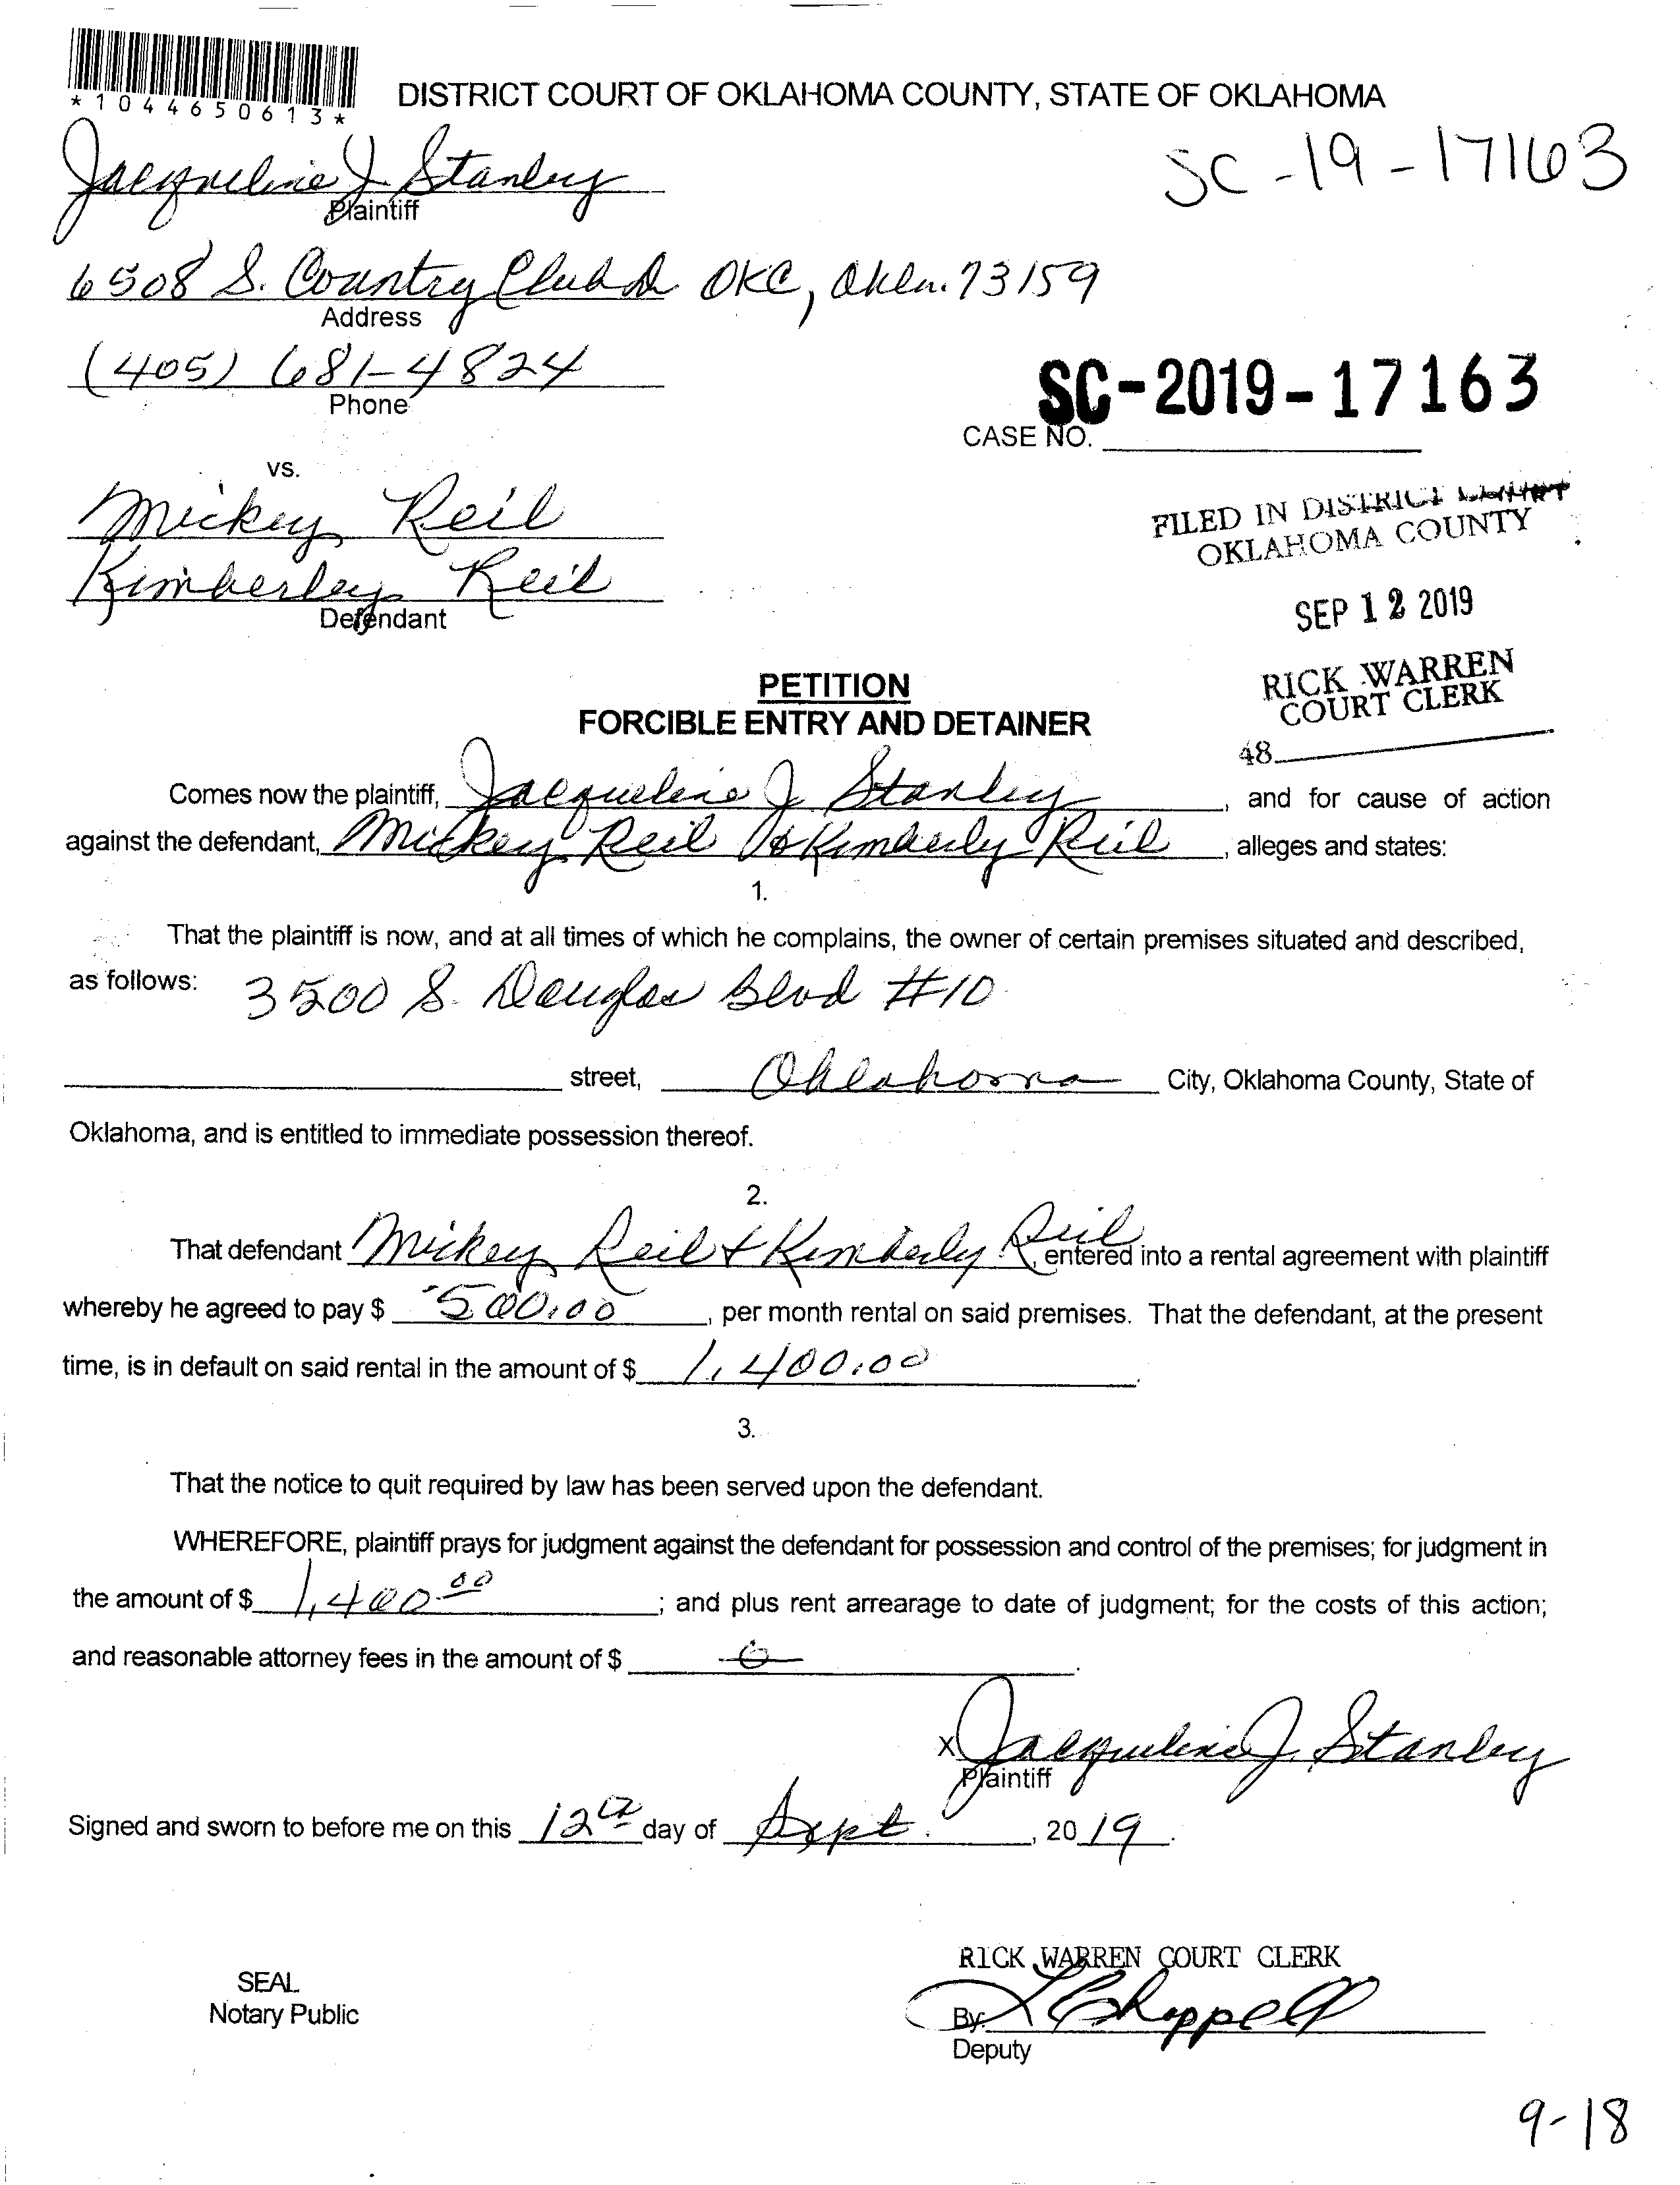 *1044650613*
DISTRICT COURT OF OKLAHOMA COUNTY, STATE OF OKLAHOMA
SC-19-17163
Jacqueline J. Stanley
Plaintiff
6508 S. Country Club Dr OKC, Okla. 73159
Address
(405) 681-4824
Phone
SC-2019-17163
CASE NO.
vs.
Mickey Reil
Kimberley Reil
Defendant
FILED IN DISTRICT COURT
OKLAHOMA COUNTY
SEP 12 2019
RICK WARREN
COURT CLERK
48
PETITION
FORCIBLE ENTRY AND DETAINER
Comes now the plaintiff, Jacqueline J Stanley, and for cause of action
against the defendant, Mickey Reil & Kimberly Reil, alleges and states:
1.
That the plaintiff is now, and at all times of which he complains, the owner of certain premises situated and described,
as follows: 3500 S. Douglas Blvd #10
street, Oklahoma City, Oklahoma County, State of
Oklahoma, and is entitled to immediate possession thereof.
2.
That defendant Mickey Reil & Kimberly Reil, entered into a rental agreement with plaintiff
whereby he agreed to pay $ 500.00, per month rental on said premises. That the defendant, at the present
time, is in default on said rental in the amount of $ 1,400.00.
3.
That the notice to quit required by law has been served upon the defendant.
WHEREFORE, plaintiff prays for judgment against the defendant for possession and control of the premises; for judgment in
the amount of $ 1,400.00; and plus rent arrearage to date of judgment; for the costs of this action;
and reasonable attorney fees in the amount of $ 0.
x Jacqueline J. Stanley
Plaintiff
Signed and sworn to before me on this 12th day of Sept., 2019.
RICK WARREN COURT CLERK
SEAL
Notary Public
By: L Chappell
Deputy
9-18